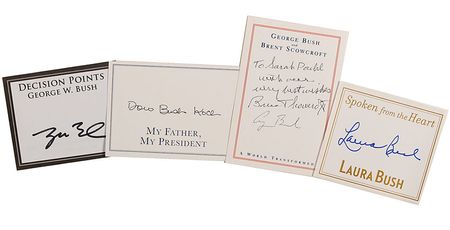 DECISION POINTS
GEORGE W. BUSH
Doro Bush Koch
MY FATHER,
MY PRESIDENT
GEORGE BUSH
AND
BRENT SCOWCROFT
To Sarah
with our
very best wishes
Brent Scowcroft
G Bush
A WORLD TRANSFORMED
Spoken from the Heart
Laura Bush
LAURA BUSH